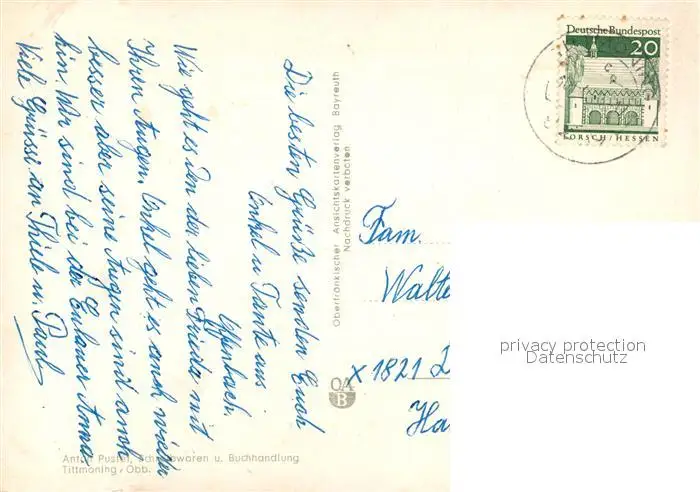 Die besten Grüße senden Euch
Onkel u Tante aus
Offenbach.
Wie geht es den der lieben Frieda mit
Ihren Augen. Onkel geht es auch wieder
besser aber seine Augen sind auch
hin. Wir sind bei der Eulauer Anna
Viele Grüssi an Thiele u. Paul
Oberfränkischer Ansichtskartenverlag Bayreuth
Nachdruck verboten
OA
B
Anton Pustet, Schreibwaren u. Buchhandlung
Tittmoning/Obb.
Deutsche Bundespost
20
LORSCH/HESSEN
Fam.
Walte
X 1821 
Ha
privacy protection
Datenschutz